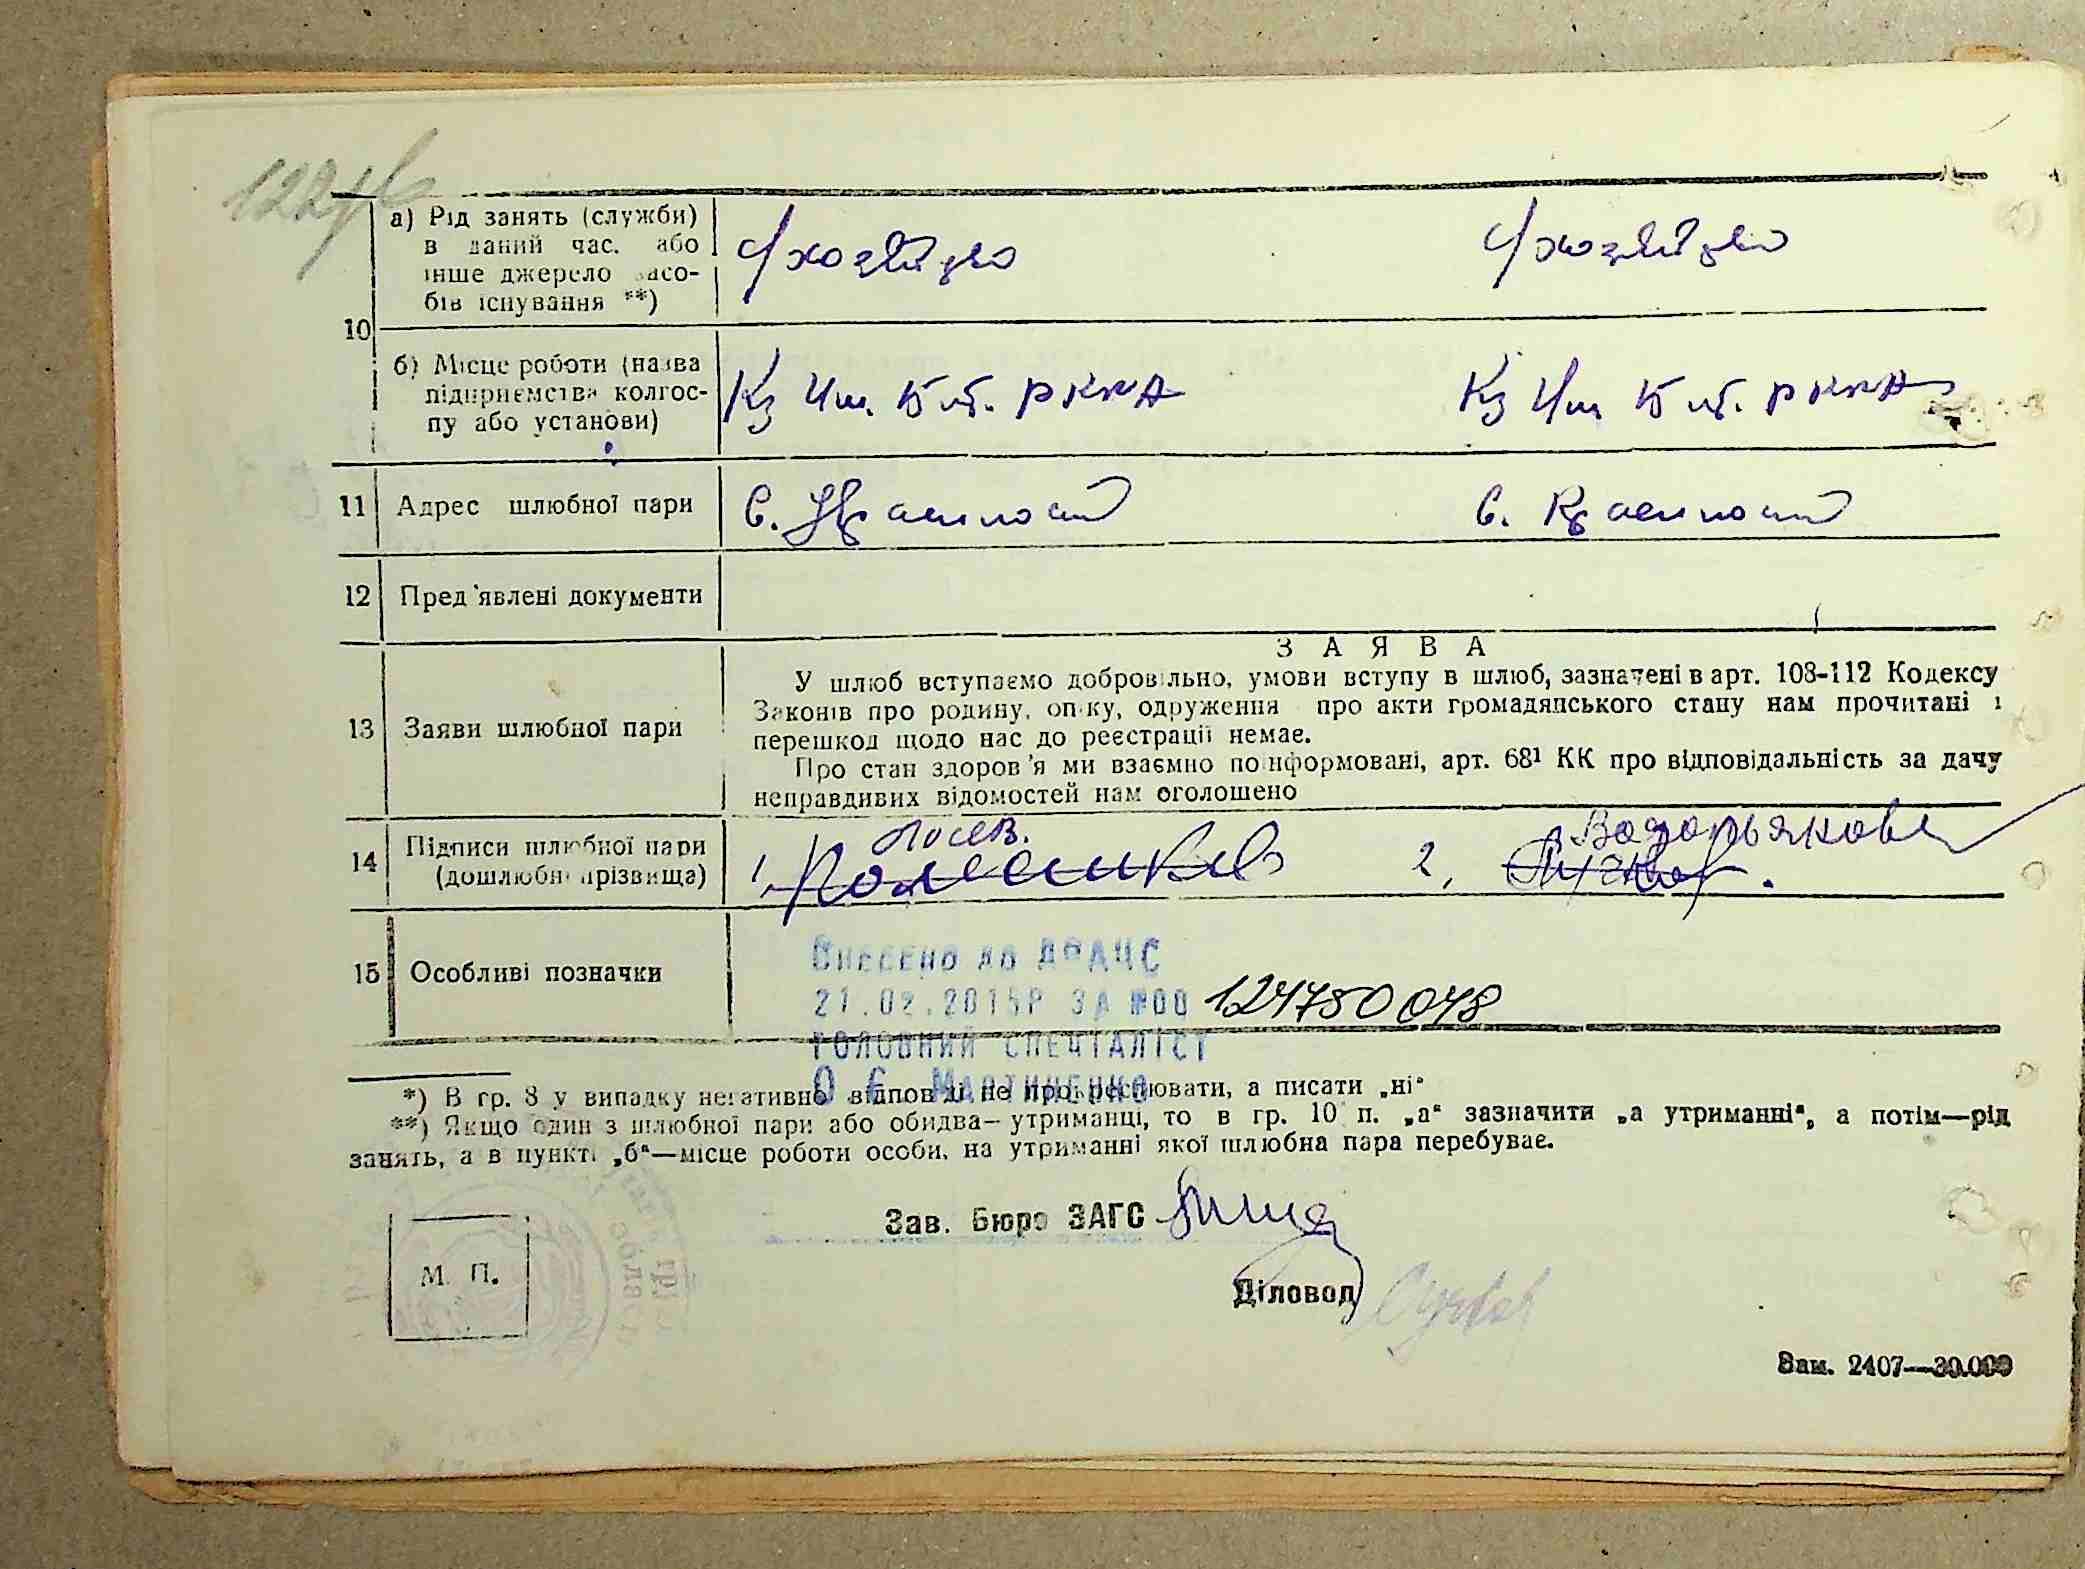 122
10
а) Рід занять (служби)
в даний час. або
інше джерело засо-
бів існування **)
б) Місце роботи (назва
підприємства колгос-
пу або установи)
Кз Им. РККА
Кз Им РККА
11 Адрес шлюбної пари
с. Краснопол
с. Краснопол
12 Пред'явлені документи
З А Я В А
13 Заяви шлюбної пари
У шлюб вступаємо добровільно, умови вступу в шлюб, зазначені в арт. 108-112 Кодексу
Законів про родину, опіку, одруження про акти громадянського стану нам прочитані і
перешкод щодо нас до реєстрації немає.
Про стан здоров'я ми взаємно поінформовані, арт. 68¹ КК про відповідальність за дачу
неправдивих відомостей нам оголошено
14 Підписи шлюбної пари
(дошлюбні прізвища)
1,
2,
15 Особливі позначки
Внесено до ДРАЧС
21.02.2015Р ЗА №00 124780048
ГОЛОВНИЙ СПЕЦІАЛІСТ
О Є МАРТИНЕНКО
*) В гр. 8 у випадку негативно відповіді не прокреслювати, а писати „ні"
**) Якщо один з шлюбної пари або обидва—утриманці, то в гр. 10 п. „а" зазначити „а утриманні", а потім—рід
занять, а в пункті „б"—місце роботи особи, на утриманні якої шлюбна пара перебуває.
Зав. Бюро ЗАГС
М. П.
Діловод
Зам. 2407—30.000